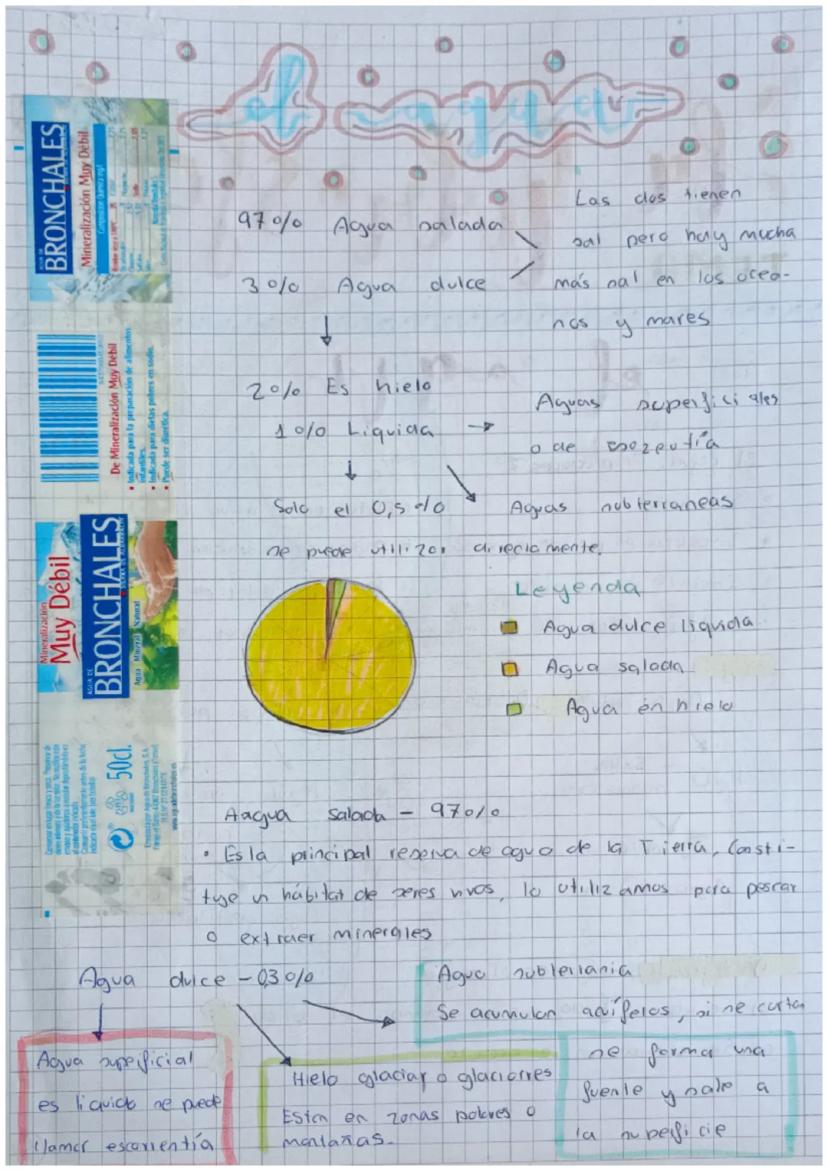 el agua
97% Agua salada
3% Agua dulce
Las dos tienen
sal pero hay mucha
más sal en los ocea-
nos y mares
2% Es hielo
1% Liquida →
Aguas superficiales
o de
Solo el 0,5%
se puede utilizar directamente.
Aguas subterraneas
Leyenda
Agua dulce liquida
Agua salada
Agua en hielo
Aagua salada - 97%
• Es la principal reserva de agua de la Tierra, Consti-
tuye un hábitat de seres vivos, lo utilizamos para pescar
o extraer minerales
Agua dulce - 03%
Agua superficial
es liquida se puede
llamar escorrientía
Hielo glaciar o glaciares
Estan en zonas polares o
montañas.
Agua subterrania
Se acumulan acuíferos, si se corta
se forma una
fuente y sale a
la superficie
BRONCHALES
Mineralización Muy Débil
De Mineralización Muy Débil
• Indicada para la preparación de alimentos
infantiles.
• Indicada para dietas pobres en sodio.
• Puede ser diurética.
Mineralización
Muy Débil
AGUA DE
BRONCHALES
Agua Mineral Natural
50cl.